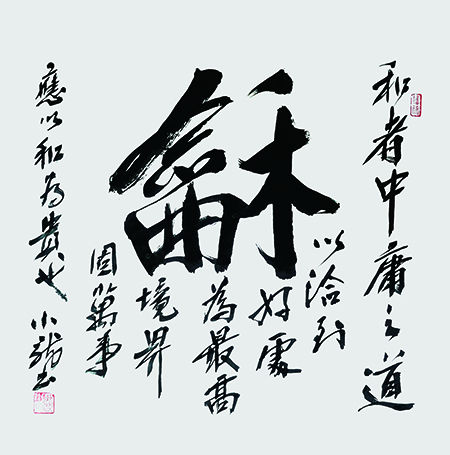 龢
和者中庸之道
以洽到
好處
為最高
境界
固萬事
應以和為貴也
小